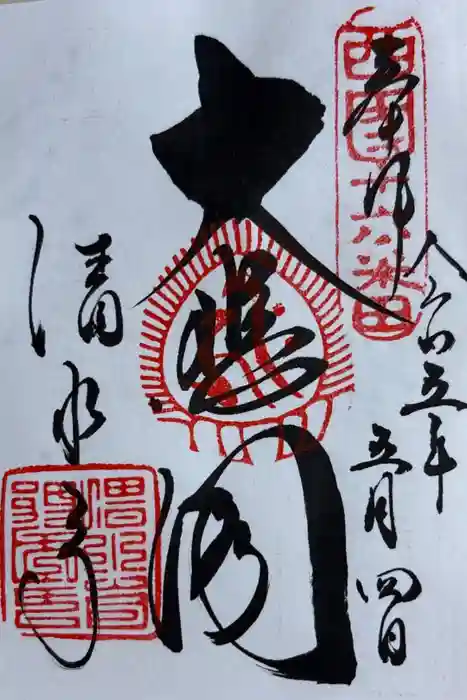 西国十六番
奉拝
令和五年
五月四日
大悲閣
清水寺